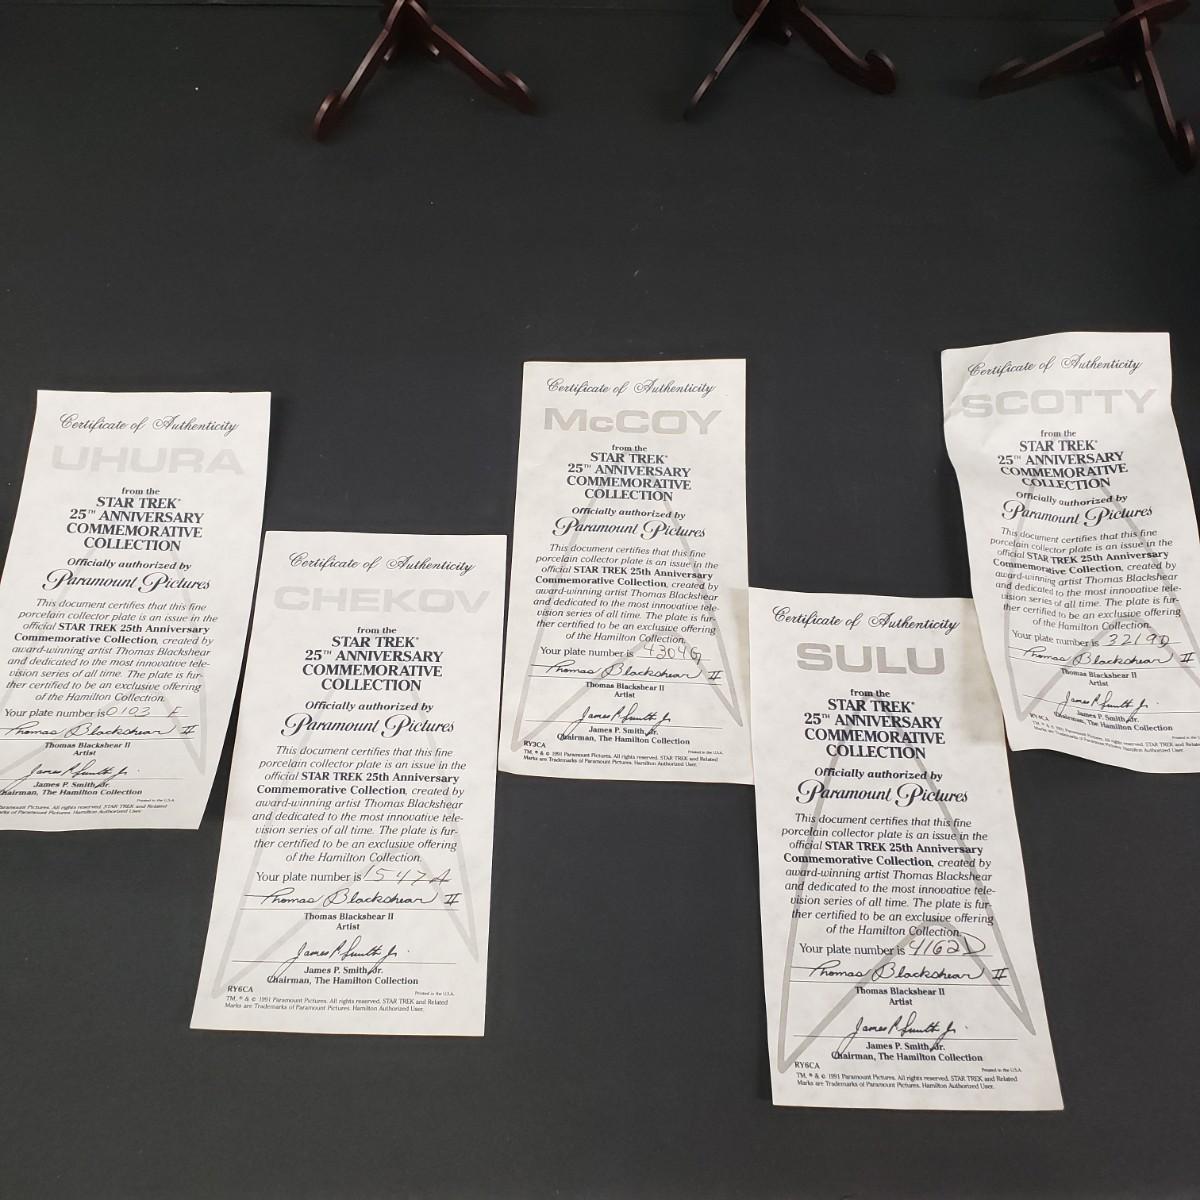 Certificate of Authenticity
UHURA
from the
STAR TREK®
25TH ANNIVERSARY
COMMEMORATIVE
COLLECTION
Officially authorized by
Paramount Pictures
This document certifies that this fine
porcelain collector plate is an issue in the
official STAR TREK 25th Anniversary
Commemorative Collection, created by
award-winning artist Thomas Blackshear
and dedicated to the most innovative tele-
vision series of all time. The plate is fur-
ther certified to be an exclusive offering
of the Hamilton Collection.
Your plate number is 0103 F
Thomas Blackshear II
Thomas Blackshear II
Artist
James P. Smith Jr.
James P. Smith, Jr.
Chairman, The Hamilton Collection
Printed in the U.S.A.
Paramount Pictures. All rights reserved. STAR TREK and Related
Marks of Paramount Pictures. Hamilton Authorized User.
Certificate of Authenticity
CHEKOV
from the
STAR TREK®
25TH ANNIVERSARY
COMMEMORATIVE
COLLECTION
Officially authorized by
Paramount Pictures
This document certifies that this fine
porcelain collector plate is an issue in the
official STAR TREK 25th Anniversary
Commemorative Collection, created by
award-winning artist Thomas Blackshear
and dedicated to the most innovative tele-
vision series of all time. The plate is fur-
ther certified to be an exclusive offering
of the Hamilton Collection.
Your plate number is 1547A
Thomas Blackshear II
Thomas Blackshear II
Artist
James P. Smith Jr.
James P. Smith, Jr.
Chairman, The Hamilton Collection
RY6CA
Printed in the U.S.A.
TM, ® & © 1991 Paramount Pictures. All rights reserved. STAR TREK and Related
Marks are Trademarks of Paramount Pictures. Hamilton Authorized User.
Certificate of Authenticity
McCOY
from the
STAR TREK®
25TH ANNIVERSARY
COMMEMORATIVE
COLLECTION
Officially authorized by
Paramount Pictures
This document certifies that this fine
porcelain collector plate is an issue in the
official STAR TREK 25th Anniversary
Commemorative Collection, created by
award-winning artist Thomas Blackshear
and dedicated to the most innovative tele-
vision series of all time. The plate is fur-
ther certified to be an exclusive offering
of the Hamilton Collection.
Your plate number is 4304G
Thomas Blackshear II
Thomas Blackshear II
Artist
James P. Smith Jr.
James P. Smith, Jr.
Chairman, The Hamilton Collection
RY3CA
Printed in the U.S.A.
TM, ® & © 1991 Paramount Pictures. All rights reserved. STAR TREK and Related
Marks are Trademarks of Paramount Pictures. Hamilton Authorized User.
Certificate of Authenticity
SULU
from the
STAR TREK®
25TH ANNIVERSARY
COMMEMORATIVE
COLLECTION
Officially authorized by
Paramount Pictures
This document certifies that this fine
porcelain collector plate is an issue in the
official STAR TREK 25th Anniversary
Commemorative Collection, created by
award-winning artist Thomas Blackshear
and dedicated to the most innovative tele-
vision series of all time. The plate is fur-
ther certified to be an exclusive offering
of the Hamilton Collection.
Your plate number is 4162D
Thomas Blackshear II
Thomas Blackshear II
Artist
James P. Smith Jr.
James P. Smith, Jr.
Chairman, The Hamilton Collection
RY6CA
Printed in the U.S.A.
TM, ® & © 1991 Paramount Pictures. All rights reserved. STAR TREK and Related
Marks are Trademarks of Paramount Pictures. Hamilton Authorized User.
Certificate of Authenticity
SCOTTY
from the
STAR TREK®
25TH ANNIVERSARY
COMMEMORATIVE
COLLECTION
Officially authorized by
Paramount Pictures
This document certifies that this fine
porcelain collector plate is an issue in the
official STAR TREK 25th Anniversary
Commemorative Collection, created by
award-winning artist Thomas Blackshear
and dedicated to the most innovative tele-
vision series of all time. The plate is fur-
ther certified to be an exclusive offering
of the Hamilton Collection.
Your plate number is 3219D
Thomas Blackshear II
Thomas Blackshear II
Artist
James P. Smith Jr.
James P. Smith, Jr.
Chairman, The Hamilton Collection
RY4CA
Printed in the
TM, ® & © 1991 Paramount Pictures. All rights reserved. STAR TREK and Related
Marks are Trademarks of Paramount Pictures. Hamilton Authorized User.